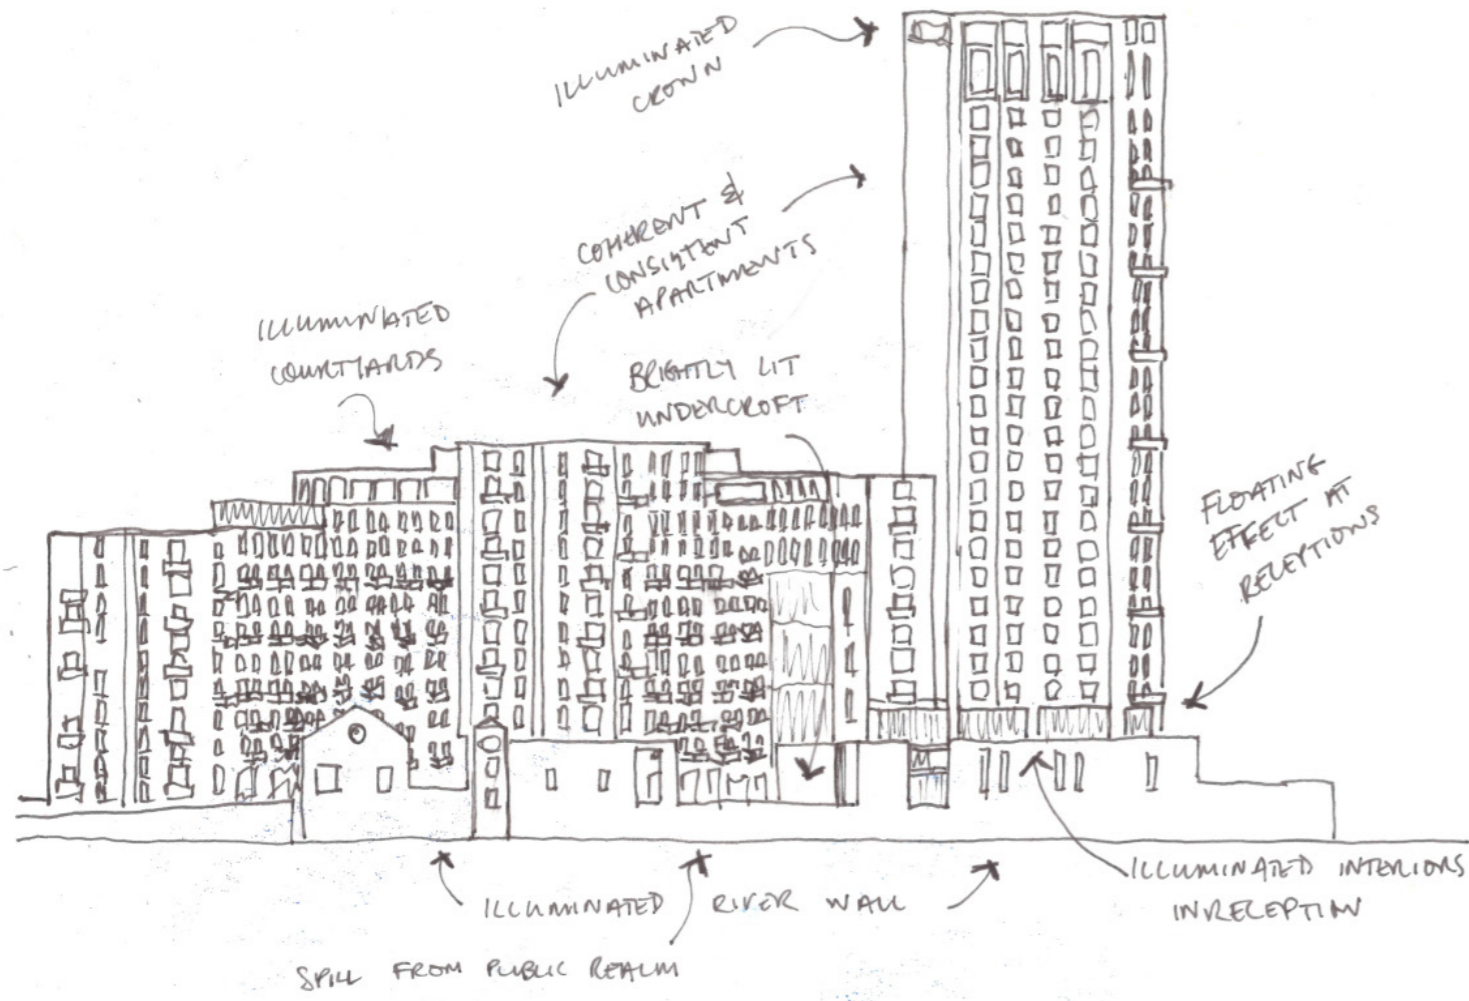 ILLUMINATED
CROWN
COHERENT &
CONSISTENT
APARTMENTS
ILLUMINATED
COURTYARDS
BRIGHTLY LIT
UNDERCROFT
FLOATING
EFFECT AT
RECEPTIONS
ILLUMINATED INTERIORS
IN RECEPTION
ILLUMINATED RIVER WALL
SPILL FROM PUBLIC REALM